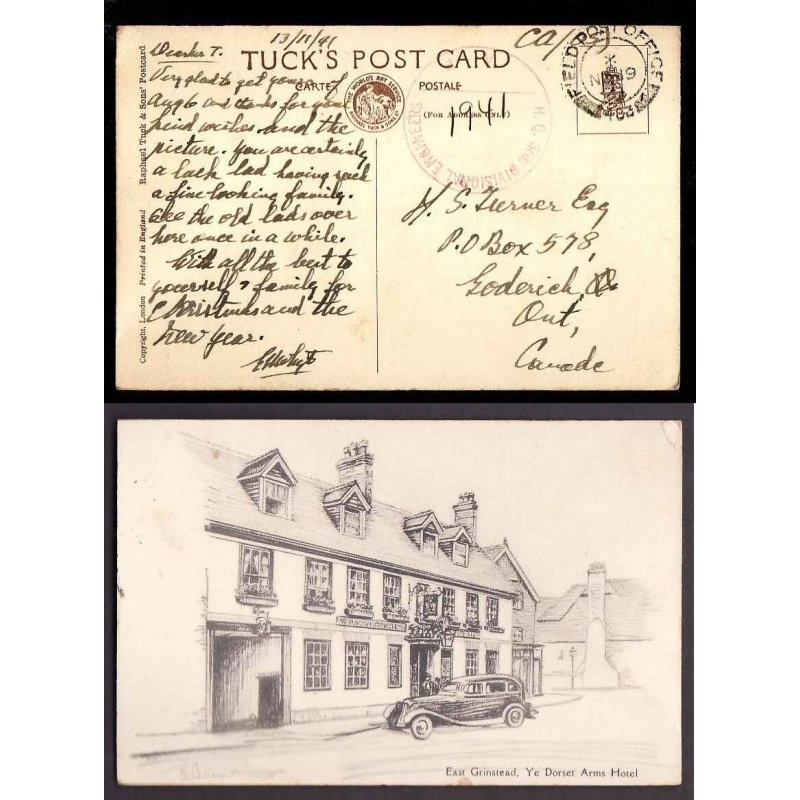 13/11/41
Dear T.
Very glad to get yours of
Aug 6 and thanks for your
kind wishes and the
picture. You are certainly
a luck lad having such
a fine looking family.
See the old lads over
here once in a while.
With all the best to
yourself & family for
Christmas and the
New Year.
Copyright, London Printed in England Raphael Tuck & Sons' Postcard
TUCK'S POST CARD
CARTE POSTALE
(For Address Only)
THE WORLD'S ART SERVICE
RAPHAEL TUCK & SONS LTD
1941
H.Q. 3rd. DIVISIONAL ENGINEERS
FIELD POST OFFICE
H. S. Turner Esq
P.O Box 578,
Goderich,
Ont,
Canada
East Grinstead, Ye Dorset Arms Hotel